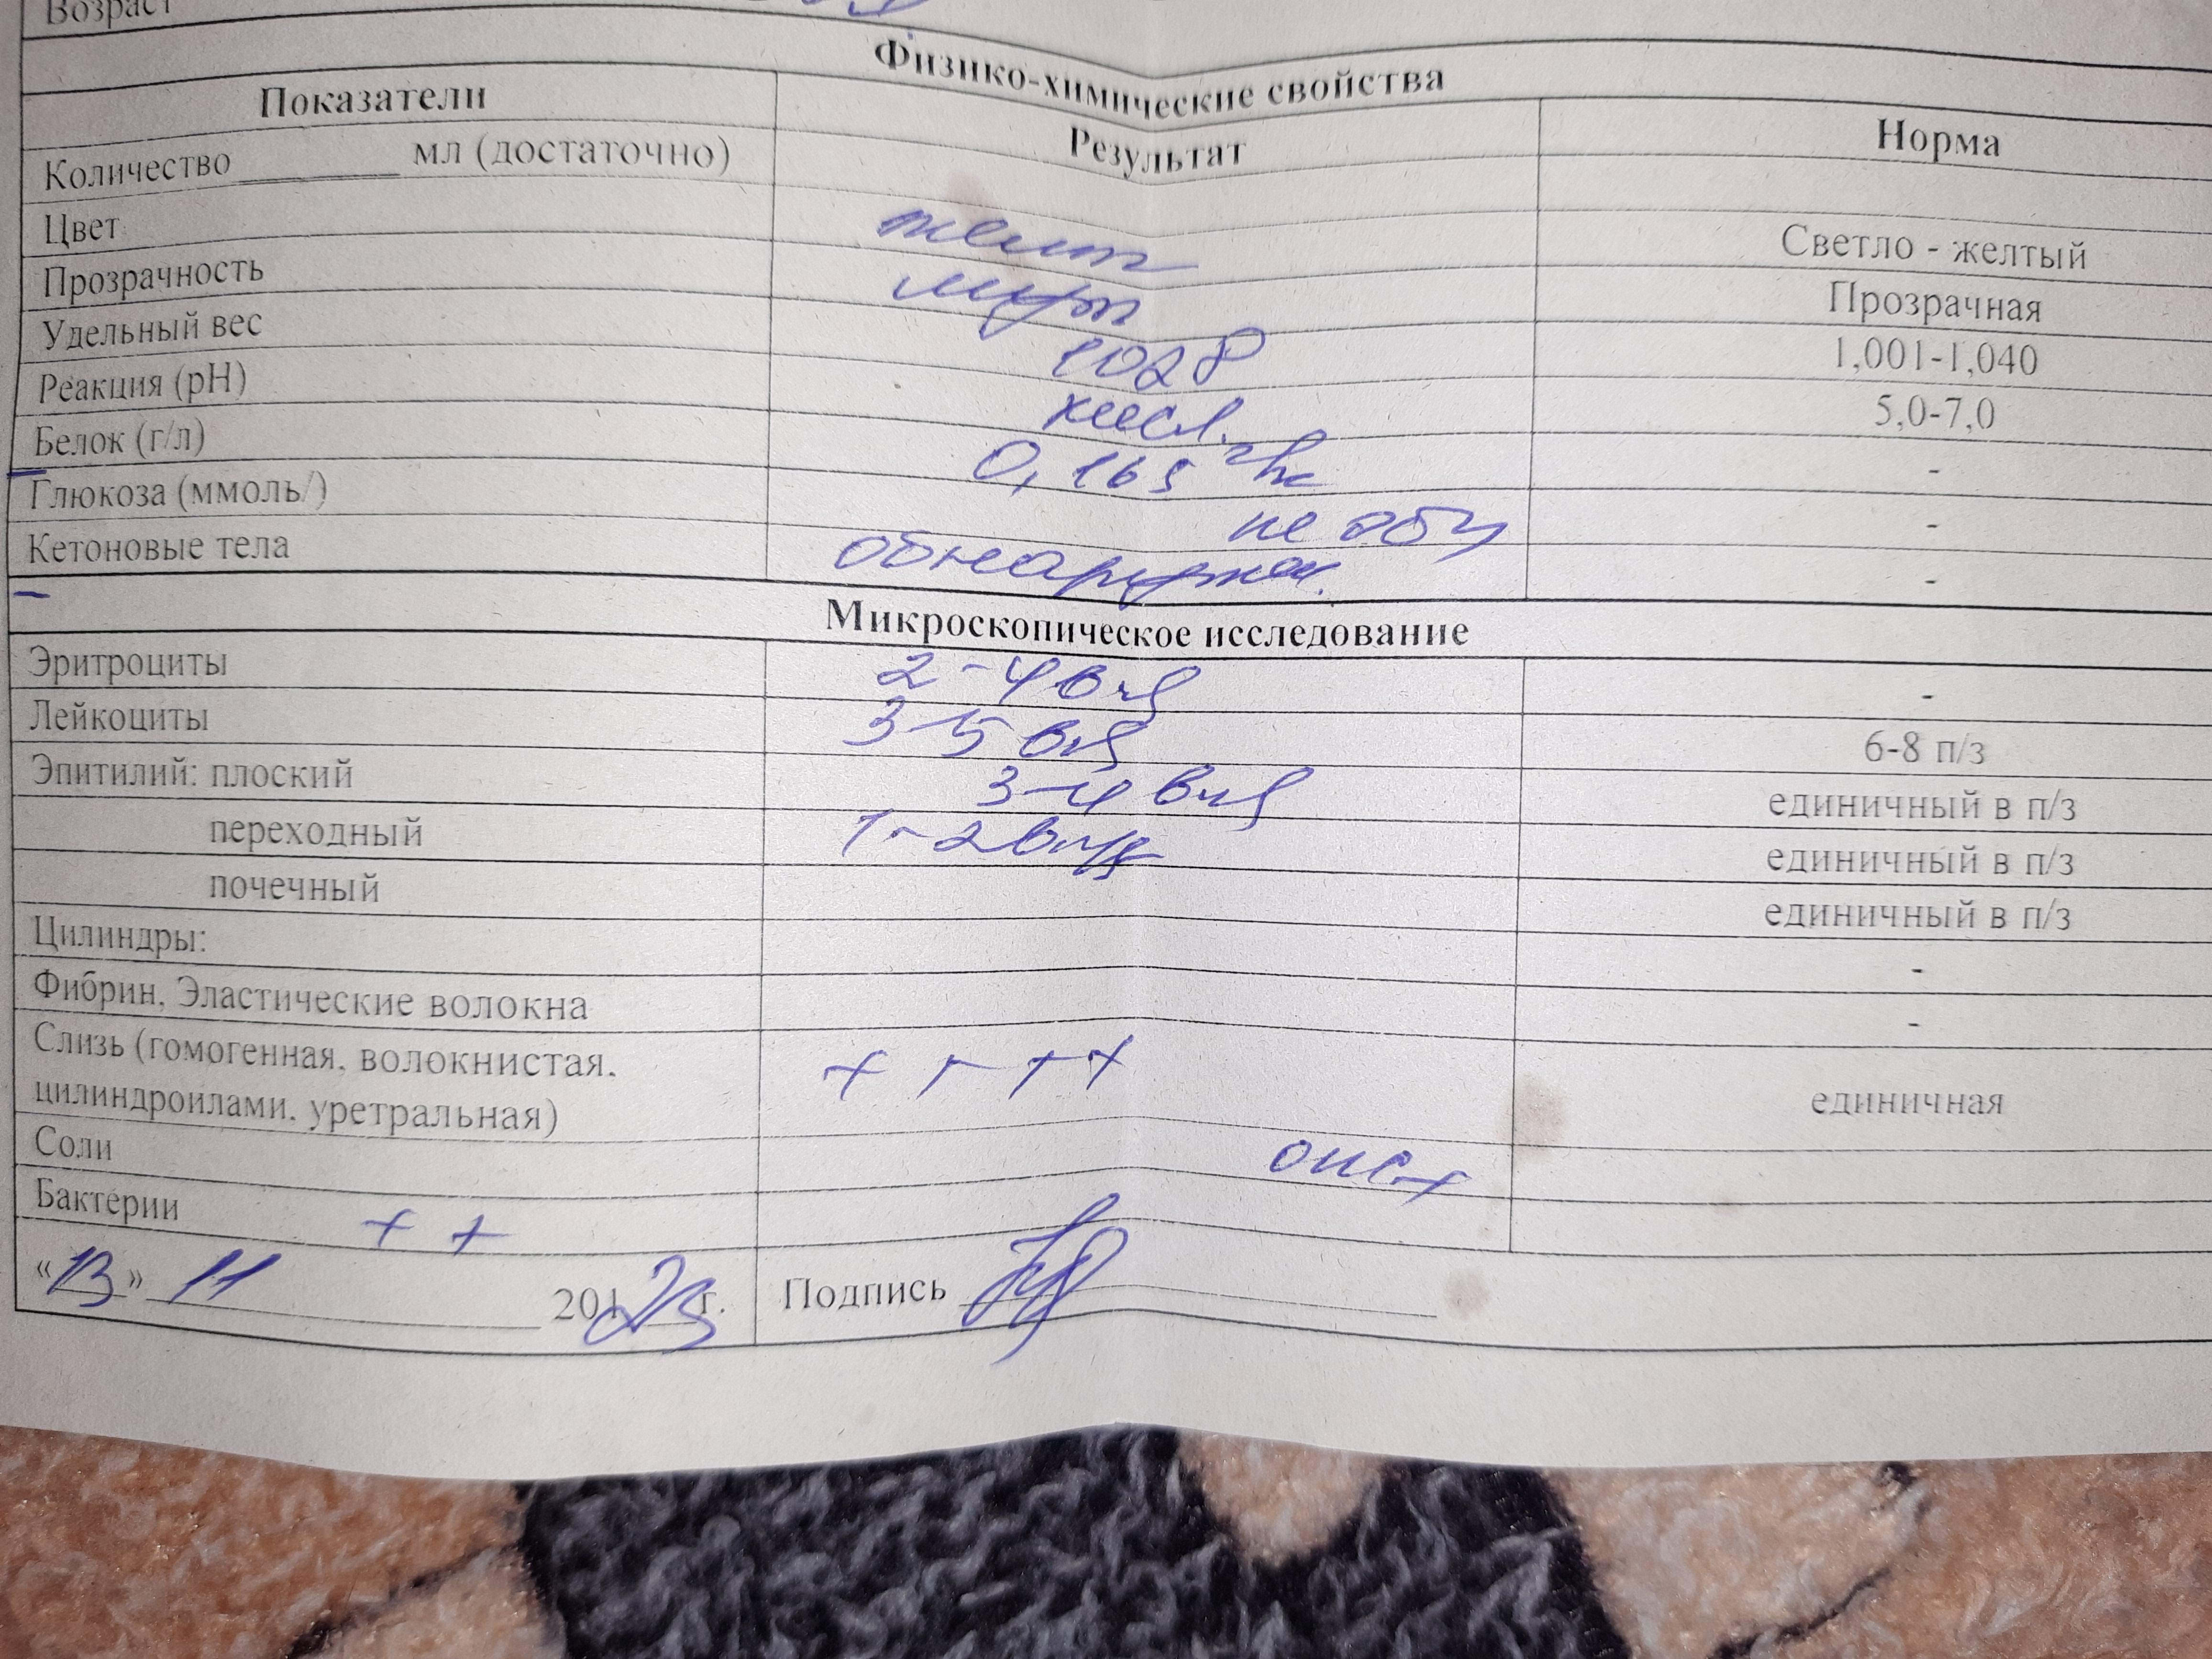 Возраст
Физико-химические свойства
Показатели Результат Норма
Количество ________ мл (достаточно)
Цвет желт Светло - желтый
Прозрачность мутн Прозрачная
Удельный вес 1028 1,001-1,040
Реакция (рН) кисл. 5,0-7,0
Белок (г/л) 0,165 г/л -
Глюкоза (ммоль/) не обн -
Кетоновые тела обнаружен. -
Микроскопическое исследование
Эритроциты 2-4 в п/з -
Лейкоциты 3-5 в п/з 6-8 п/з
Эпитилий: плоский 3-4 в п/з единичный в п/з
переходный 1-2 в п/з единичный в п/з
почечный единичный в п/з
Цилиндры: -
Фибрин, Эластические волокна -
Слизь (гомогенная, волокнистая, цилиндроилами, уретральная) + + + + единичная
Соли
Бактерии + +
«13» 11 201 г. Подпись